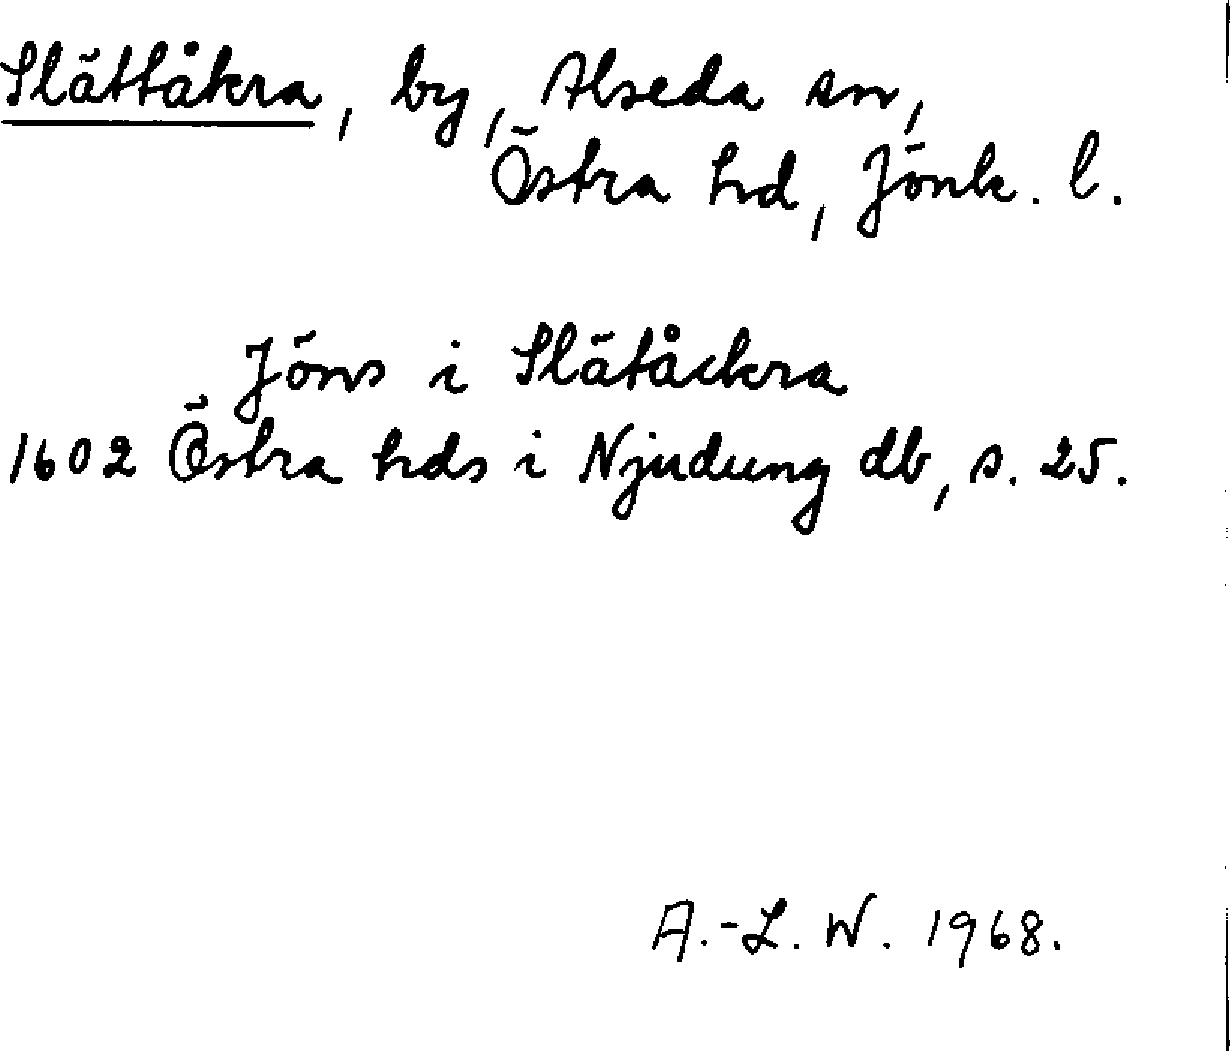 Slättåkra, by, Alseda sn,
Östra hd, Jönk. l.
Jöns i Slätåckra
1602 Östra hds i Njudung db, s. 25.
A.-L. W. 1968.